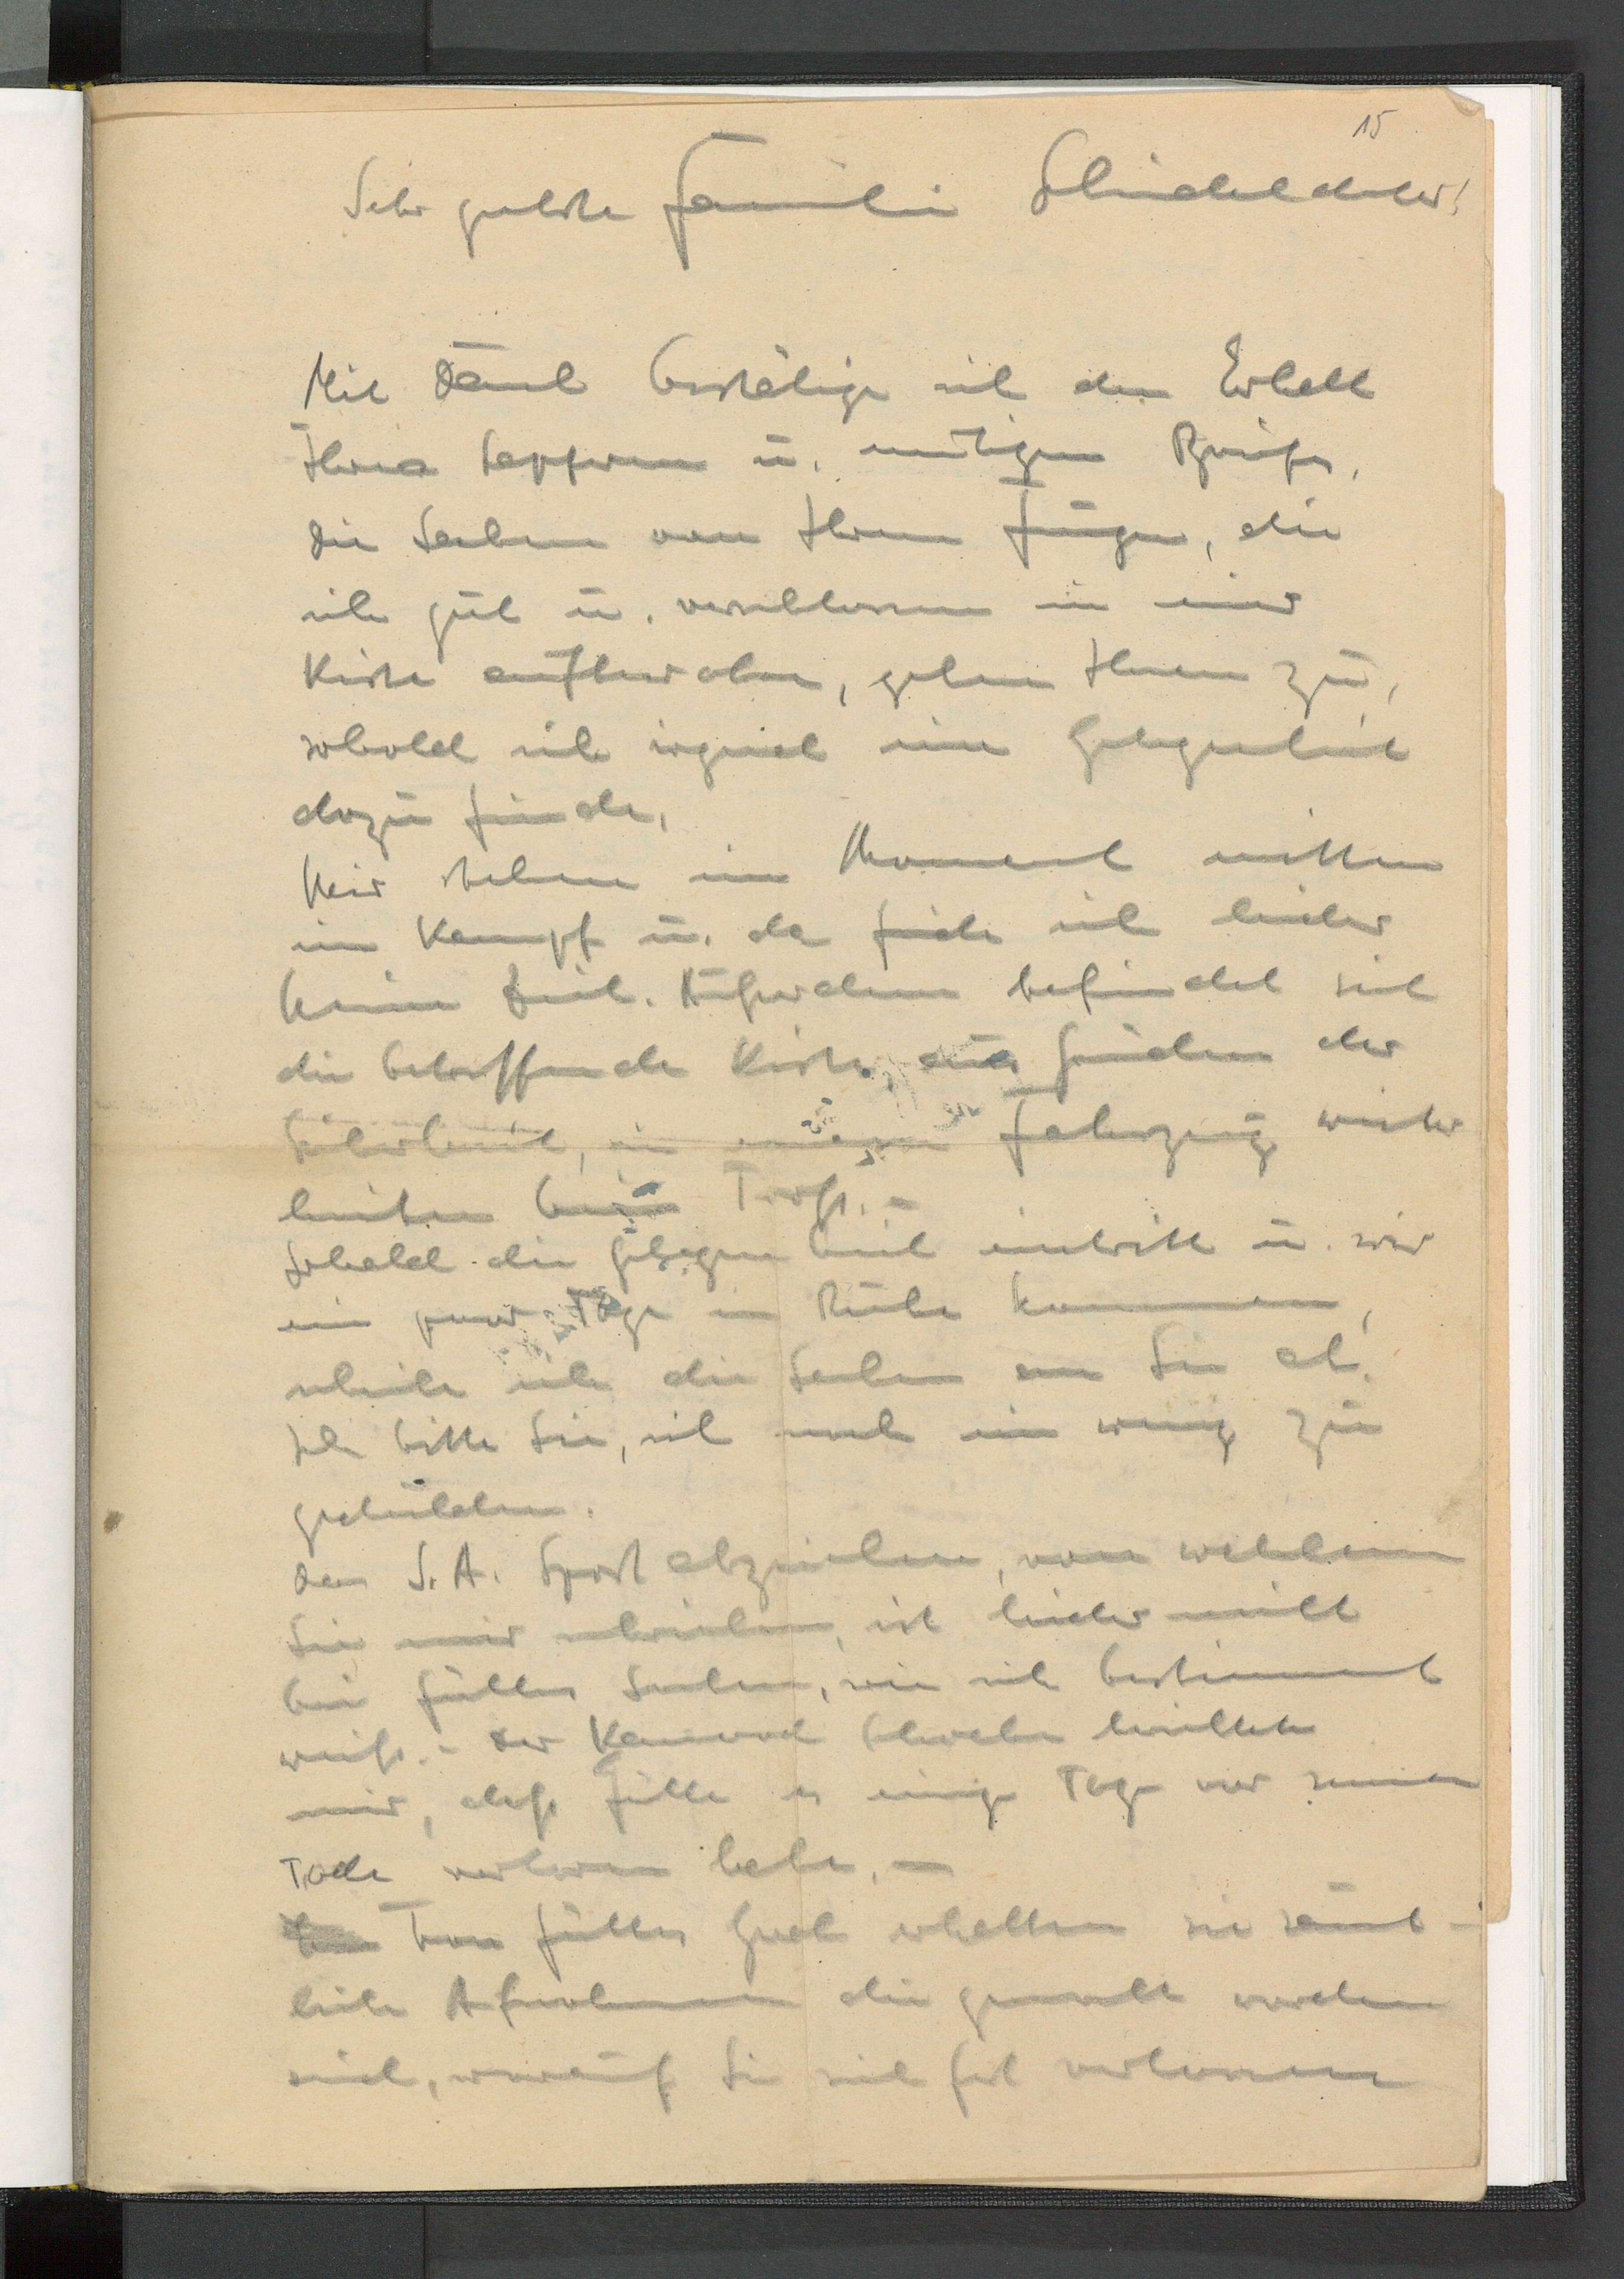 15
Sehr geehrte Familie
Mit Dank bestätige ich den Erhalt
Ihres tapferen u. mutigen Briefes,
die Sachen von Ihrem Jungen, die
ich gut u. verschlossen in einer
Kiste aufbewahre, gehen Ihnen zu,
sobald ich irgend eine Gelegenheit
dazu finde,
Wir stehen im Moment mitten
im Kampf u. da finde ich leider
keine Zeit. Außerdem befindet sich
die betreffende Kiste, aus Gründen der
Sicherheit, in unserem Fahrzeug weiter
hinten beim Troß. –
Sobald die Gelegenheit eintritt u. wir
ein paar Tage in Ruhe kommen,
schicke ich die Sachen an Sie ab.
Ich bitte Sie, sich noch ein wenig zu
gedulden.
Das S.A. Sportabzeichen, von welchem
Sie mir schrieben, ist leider nicht
bei Sachen, wie ich bestimmt
weiß. – Der Kamerad berichtete
mir, daß es einige Tage vor seinem
Tode verloren habe. –
Von Grab erhalten sie sämt-
liche Aufnahmen die gemacht worden
sind, worauf Sie sich fest verlassen